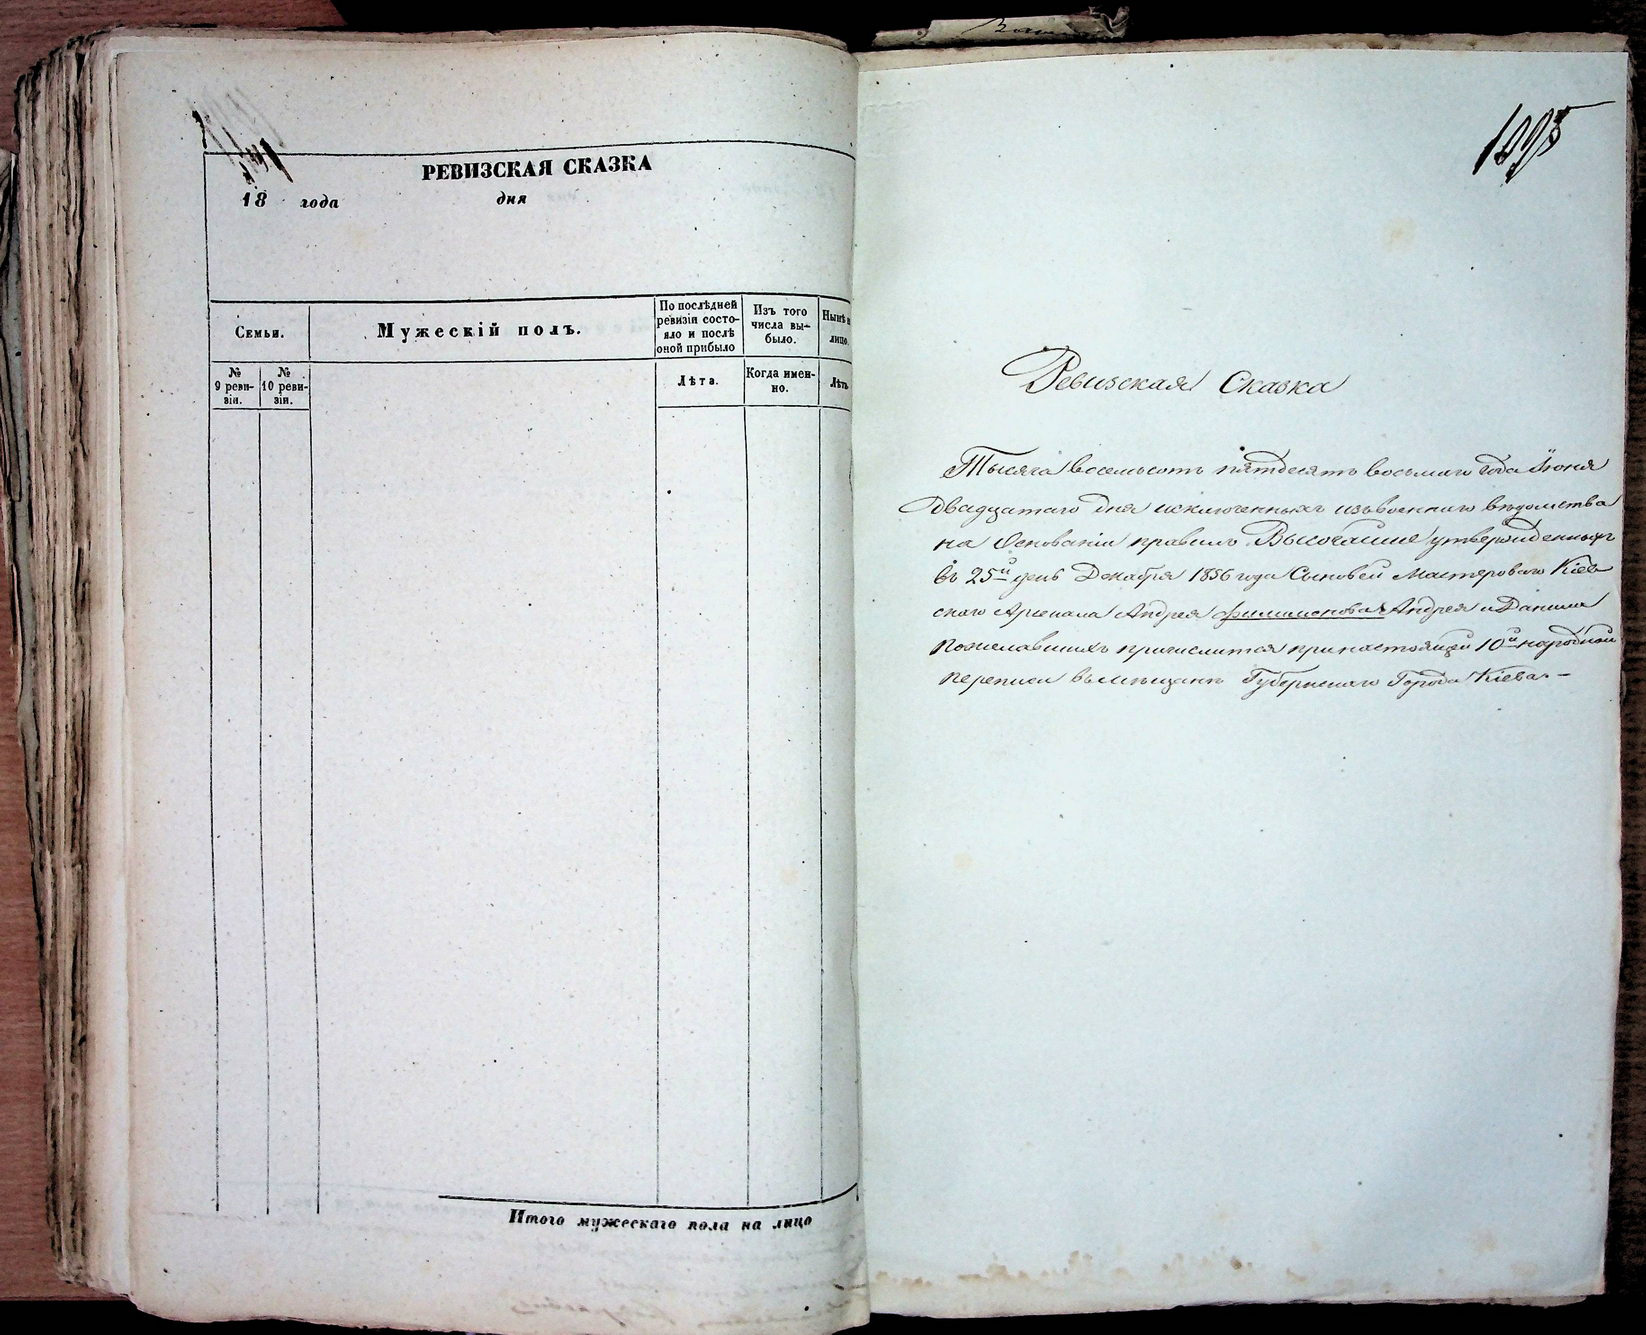 РЕВИЗСКАЯ СКАЗКА
18 года дня
Семьи.
Мужескій полъ.
По послѣдней ревизіи состояло и послѣ оной прибыло
Изъ того числа выбыло.
Нынѣ лицо.
№ 9 ревизіи.
№ 10 ревизіи.
Лѣта.
Когда именно.
Лѣтъ
Итого мужескаго пола на лицо
Ревизская Сказка
Тысяча восемьсотъ пятдесятъ восьмаго года Іюня
Двадцатаго дня исключенныхъ изъ военнаго вѣдомства
на Основаніи правилъ Высочайше утвержденныхъ
въ 25й день Декабря 1856 года Сыновей Мастероваго Кіев
скаго Арсенала Андрея Филимонова Андрея и Данила
пожелавшихъ причислится при настоящей 10й народной
переписи въ мѣщане Губернскаго Города Кіева. –